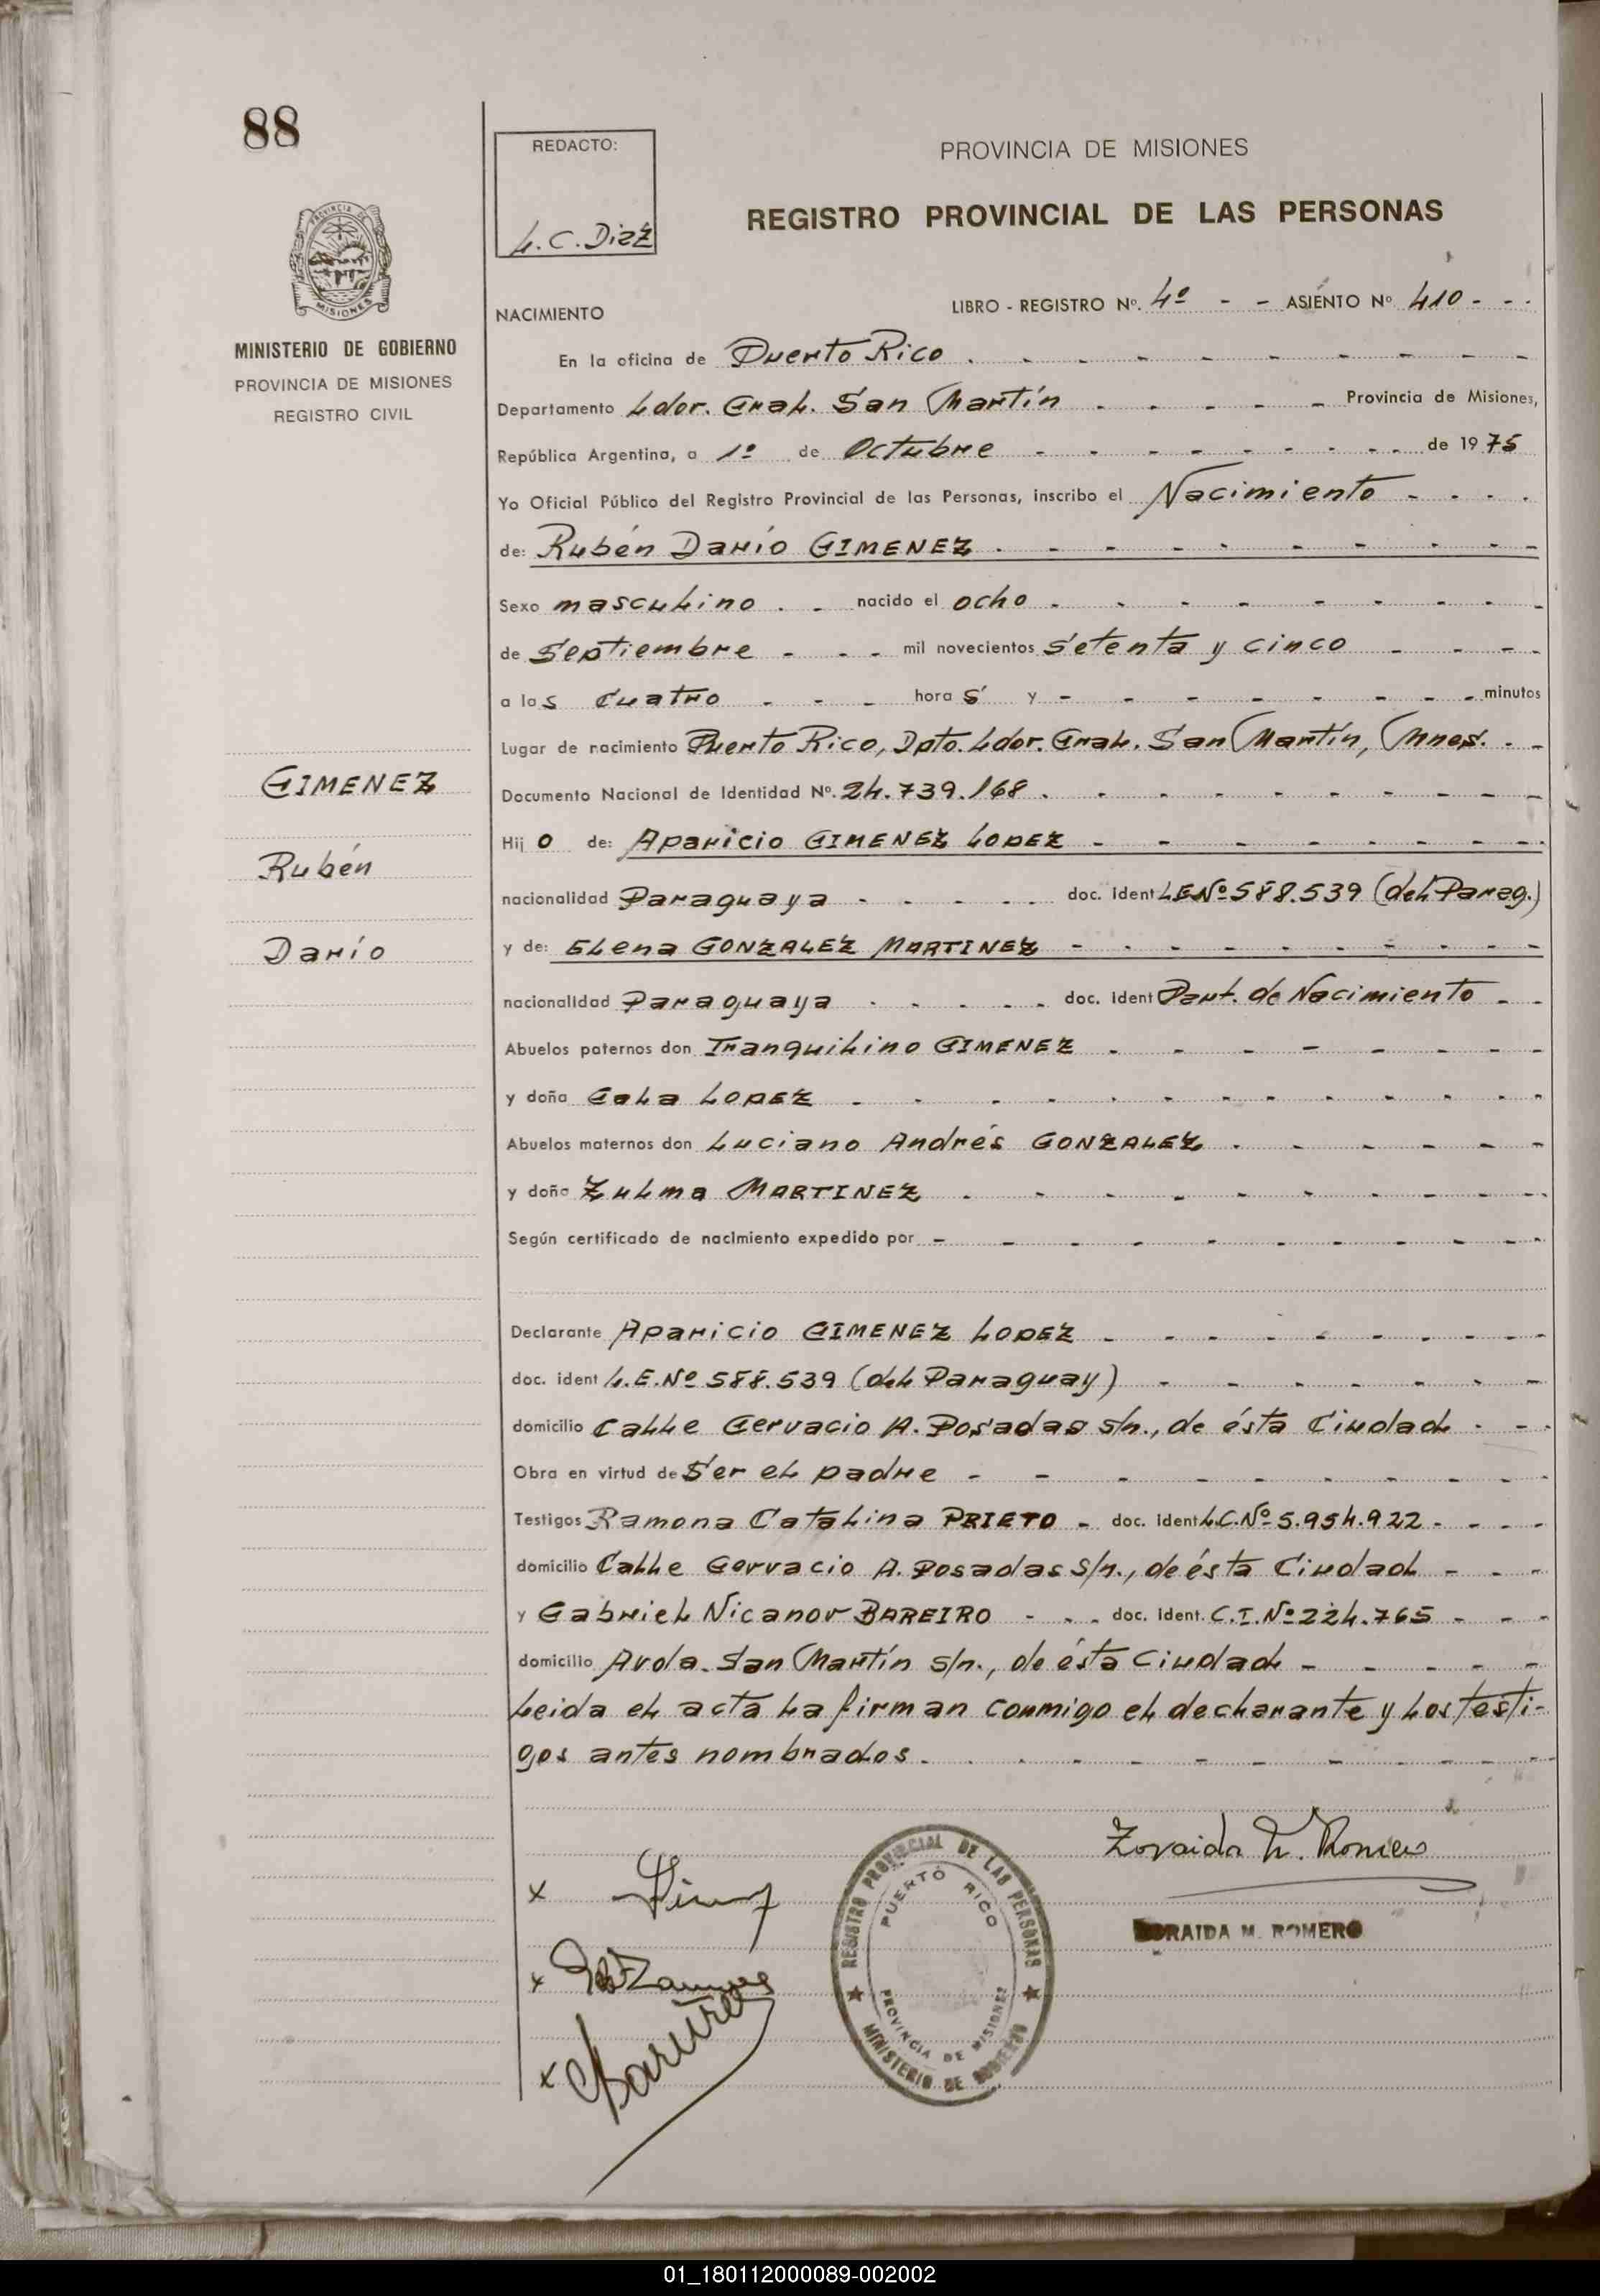 88
REDACTO:
L.C. Diaz
PROVINCIA DE MISIONES
REGISTRO PROVINCIAL DE LAS PERSONAS
PROVINCIA DE
MISIONES
MINISTERIO DE GOBIERNO
PROVINCIA DE MISIONES
REGISTRO CIVIL
NACIMIENTO LIBRO - REGISTRO Nº. 4º - - ASIENTO Nº 410 - - -
En la oficina de Puerto Rico
Departamento Ldor. Gral. San Martín Provincia de Misiones,
República Argentina, a 1º de Octubre de 1975
Yo Oficial Público del Registro Provincial de las Personas, inscribo el Nacimiento
de: Rubén Darío GIMENEZ
Sexo masculino nacido el ocho
de Septiembre mil novecientos setenta y cinco
a las cuatro horas y - minutos
Lugar de nacimiento Puerto Rico, Dpto. Ldor. Gral. San Martín, Mnes.
Documento Nacional de Identidad Nº. 24.739.168
Hijo de: Aparicio GIMENEZ LOPEZ
nacionalidad Paraguaya doc. ident L.E.Nº 588.539 (del Parag.)
y de: Elena GONZALEZ MARTINEZ
nacionalidad Paraguaya doc. ident Part. de Nacimiento
Abuelos paternos don Tranquilino GIMENEZ
y doña LOPEZ
Abuelos maternos don Luciano Andrés GONZALEZ
y doña Zulma MARTINEZ
Según certificado de nacimiento expedido por
Declarante Aparicio GIMENEZ LOPEZ
doc. ident L.E.Nº 588.539 (del Paraguay)
domicilio Calle Gervacio A. Posadas s/n., de ésta Ciudad
Obra en virtud de Ser el padre
Testigos Ramona Catalina PRIETO doc. ident L.C.Nº 5.954.922
domicilio Calle Gervacio A. Posadas s/n., de ésta Ciudad
y Gabriel Nicanor BAREIRO doc. ident. C.I.Nº 224.765
domicilio Avda. San Martín s/n., de ésta Ciudad
Leida el acta la firman conmigo el declarante y los testi-
gos antes nombrados
GIMENEZ
Rubén
Darío
x
x
x
REGISTRO PROVINCIAL DE LAS PERSONAS
PUERTO RICO
PROVINCIA DE MISIONES
MINISTERIO DE GOBIERNO
Zoraida M. Romero
ZORAIDA M. ROMERO
01_180112000089-002002